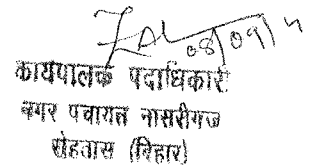 08/09/
कार्यपालक पदाधिकारी
नगर पंचायत नासरीगंज
रोहतास (बिहार)